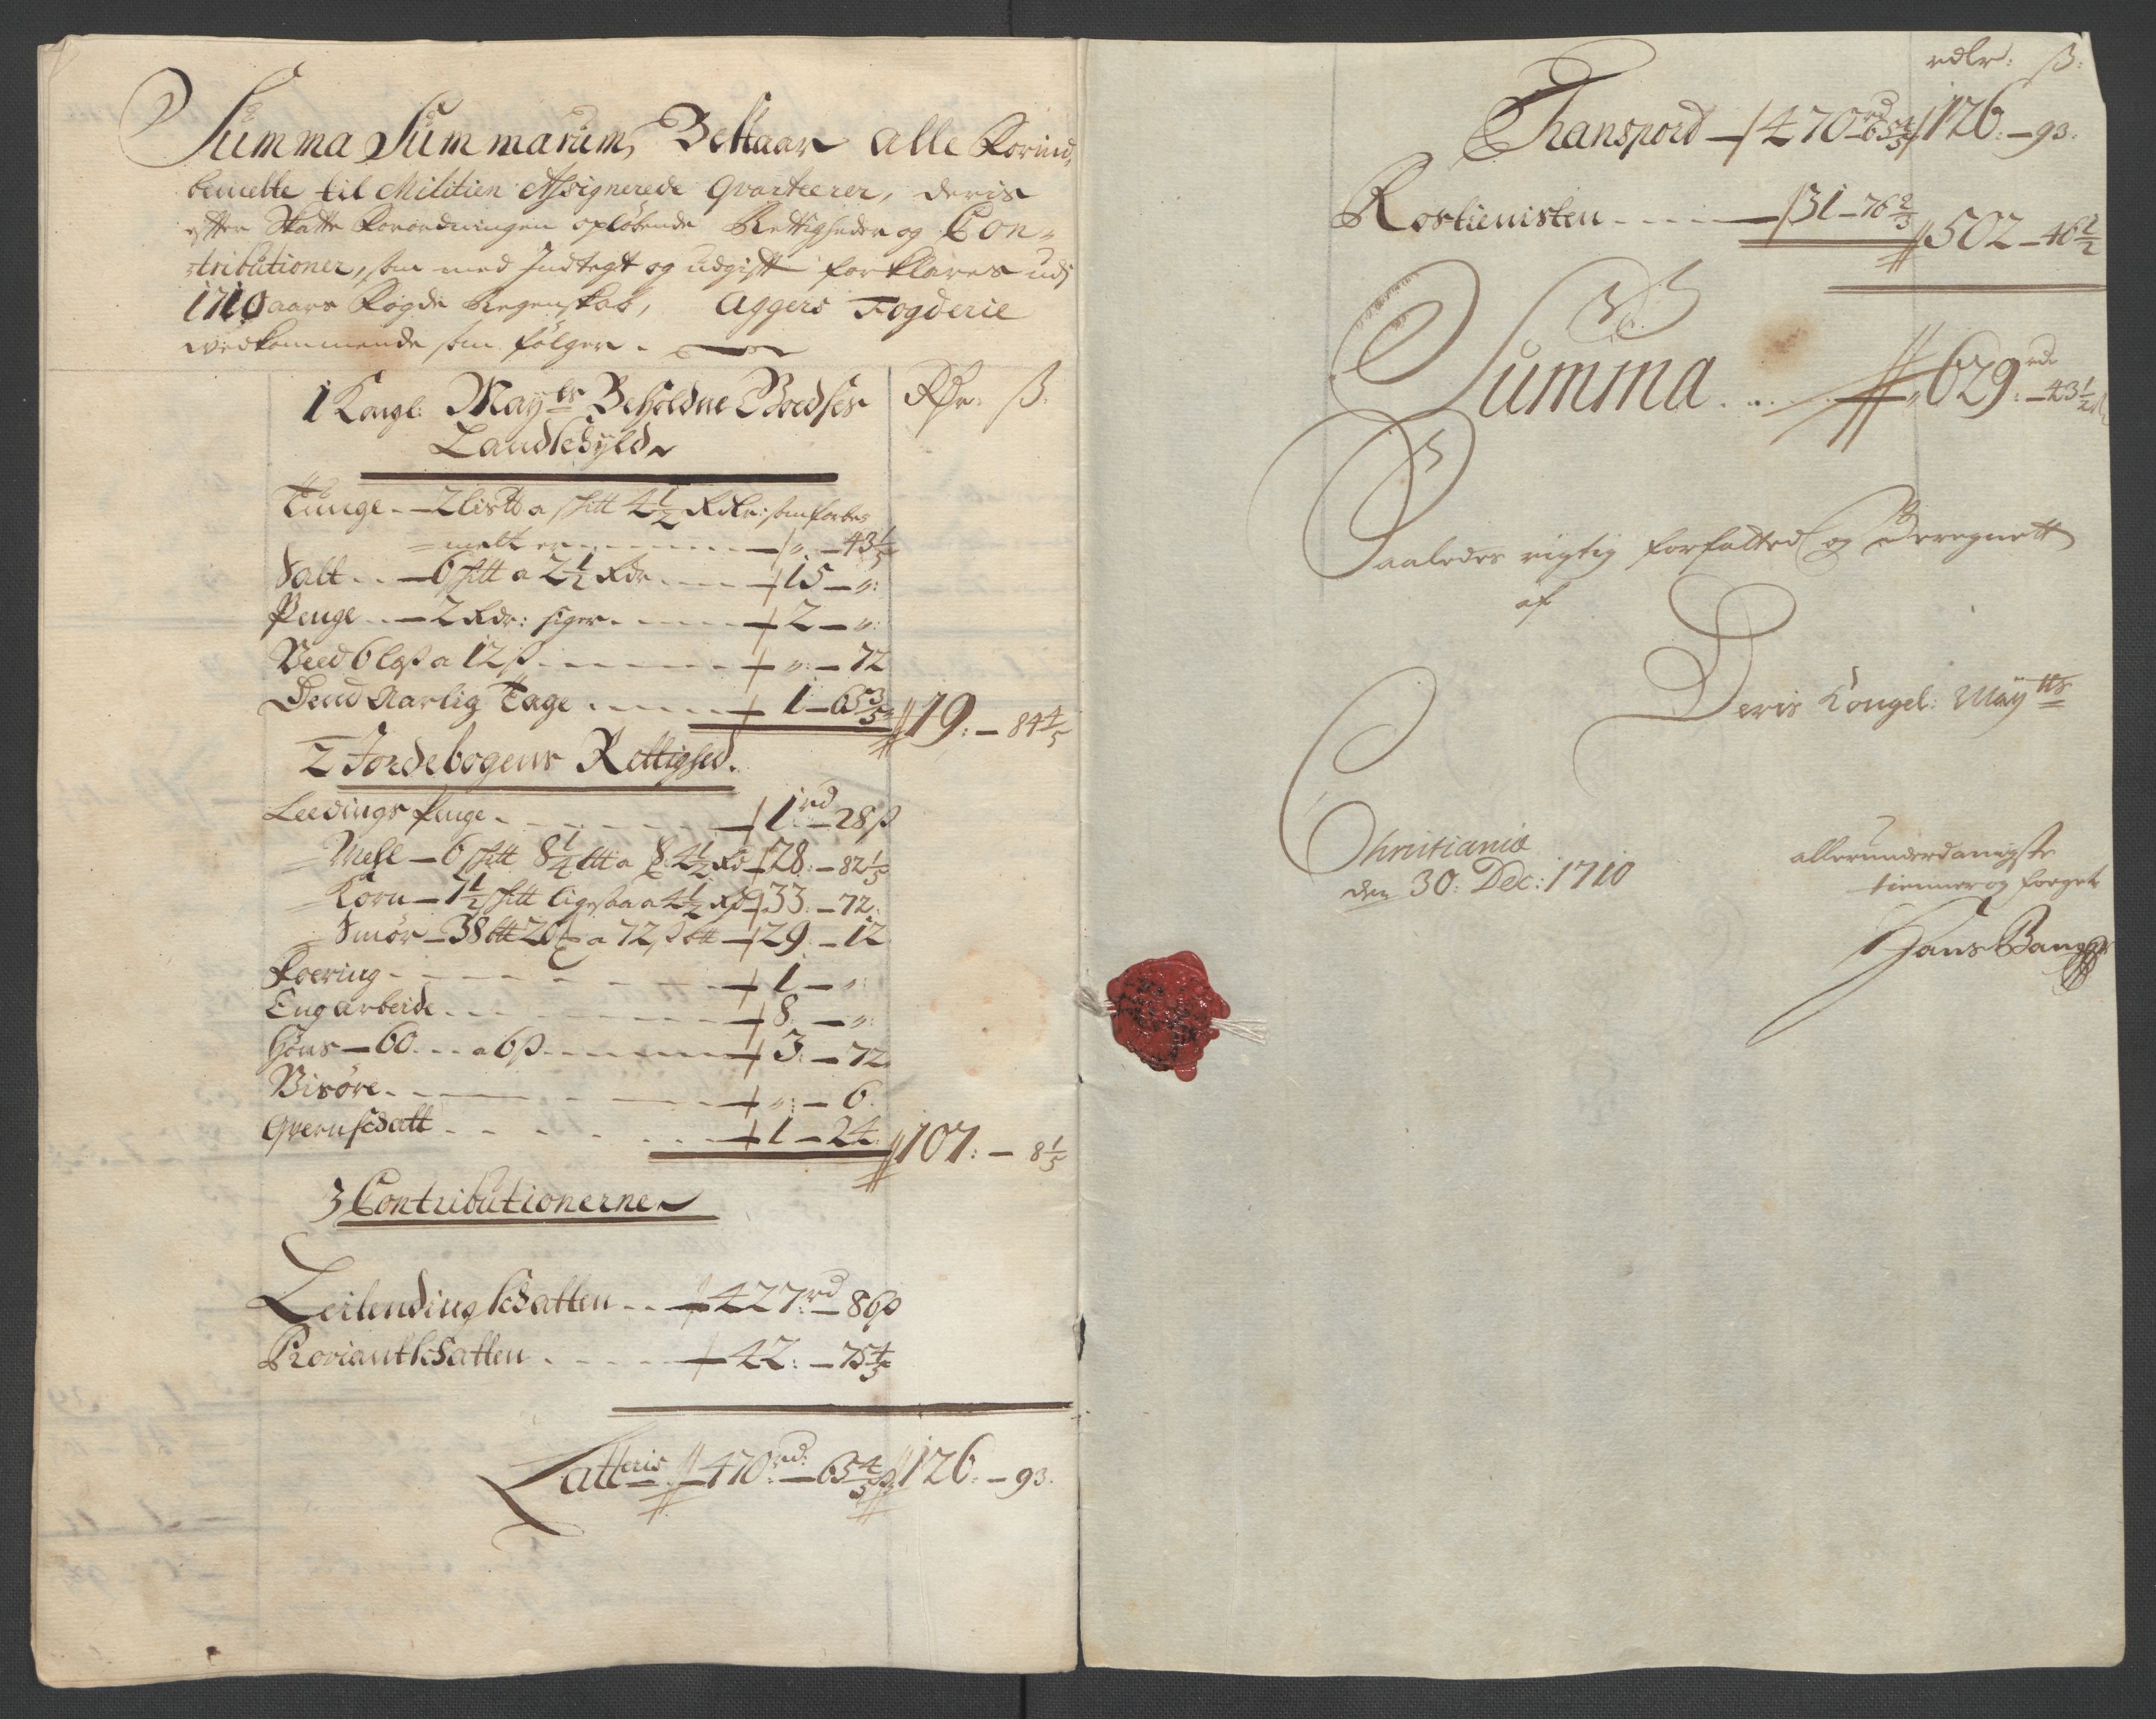 Summa Summarum, Bestaar alle Forind,
bemelte til Militien Assignerede Qvarteerer, deris
efter Skatte Forordningen opløbende Rettigheder og Con-
tributioner, som med Indtegt og udgift forklares udj
1710 aars Fogde Regenskab, Aggers Fogderie
vedkommende som følger.
1 Kongl: Mayts Beholdne Godses RDr: ß:
Landschyld
Tunge - 2 lispd a schtt 4½ Rdr: som forbe
melt er - „ - 43 1/5
Salt - 6 schtt a 2½ Rdr - 15 - „:
Penge - 2 Rdr: siger - 2 - „:
Veed 6 lass a 12 ß - „ - 72
Dend Aarlig Tage - 1 - 65 3/5 19: - 84 4/5
2 Jordebogens Rettighed.
Leedings Penge - 1rd - 28 ß
Mehl - 6 schtt 8¼ ltt a 4½ Rd - 28: - 82 1/5
Korn - 7½ schtt ligesaa a 4½ Rd 33: - 72:
Smør - 38 btt a 72 ß btt - 29 - 12
Foering - 1 - „:
Engarbeide - 8: - „:
Høns - 60 - a 6 ß - 3: - 72
Bisøre - „: - 6
Qvernschatt - 1 - 24 107: - 8 1/5
3 Contributionerne
Leilending Schatten - 427rd - 86 ß
Proviant Schatten - 42: - 75 4/5
Latteris 470rd: - 65 4/5 ß 126: - 93.
rdlr: ß:
Transpord - 470rd 65 4/5 126: - 93:
Rostienisten - 31 - 76 2/3 502 - 46 2/2
Summa - 629:rd - 43 1/2
Saaledes rigtig forfatted og Beregnett
af
Deris Kongel: Mayts
Christiania
den 30: Dec: 1710
allerunderdanigste
tienner og foeget
Hans Bang